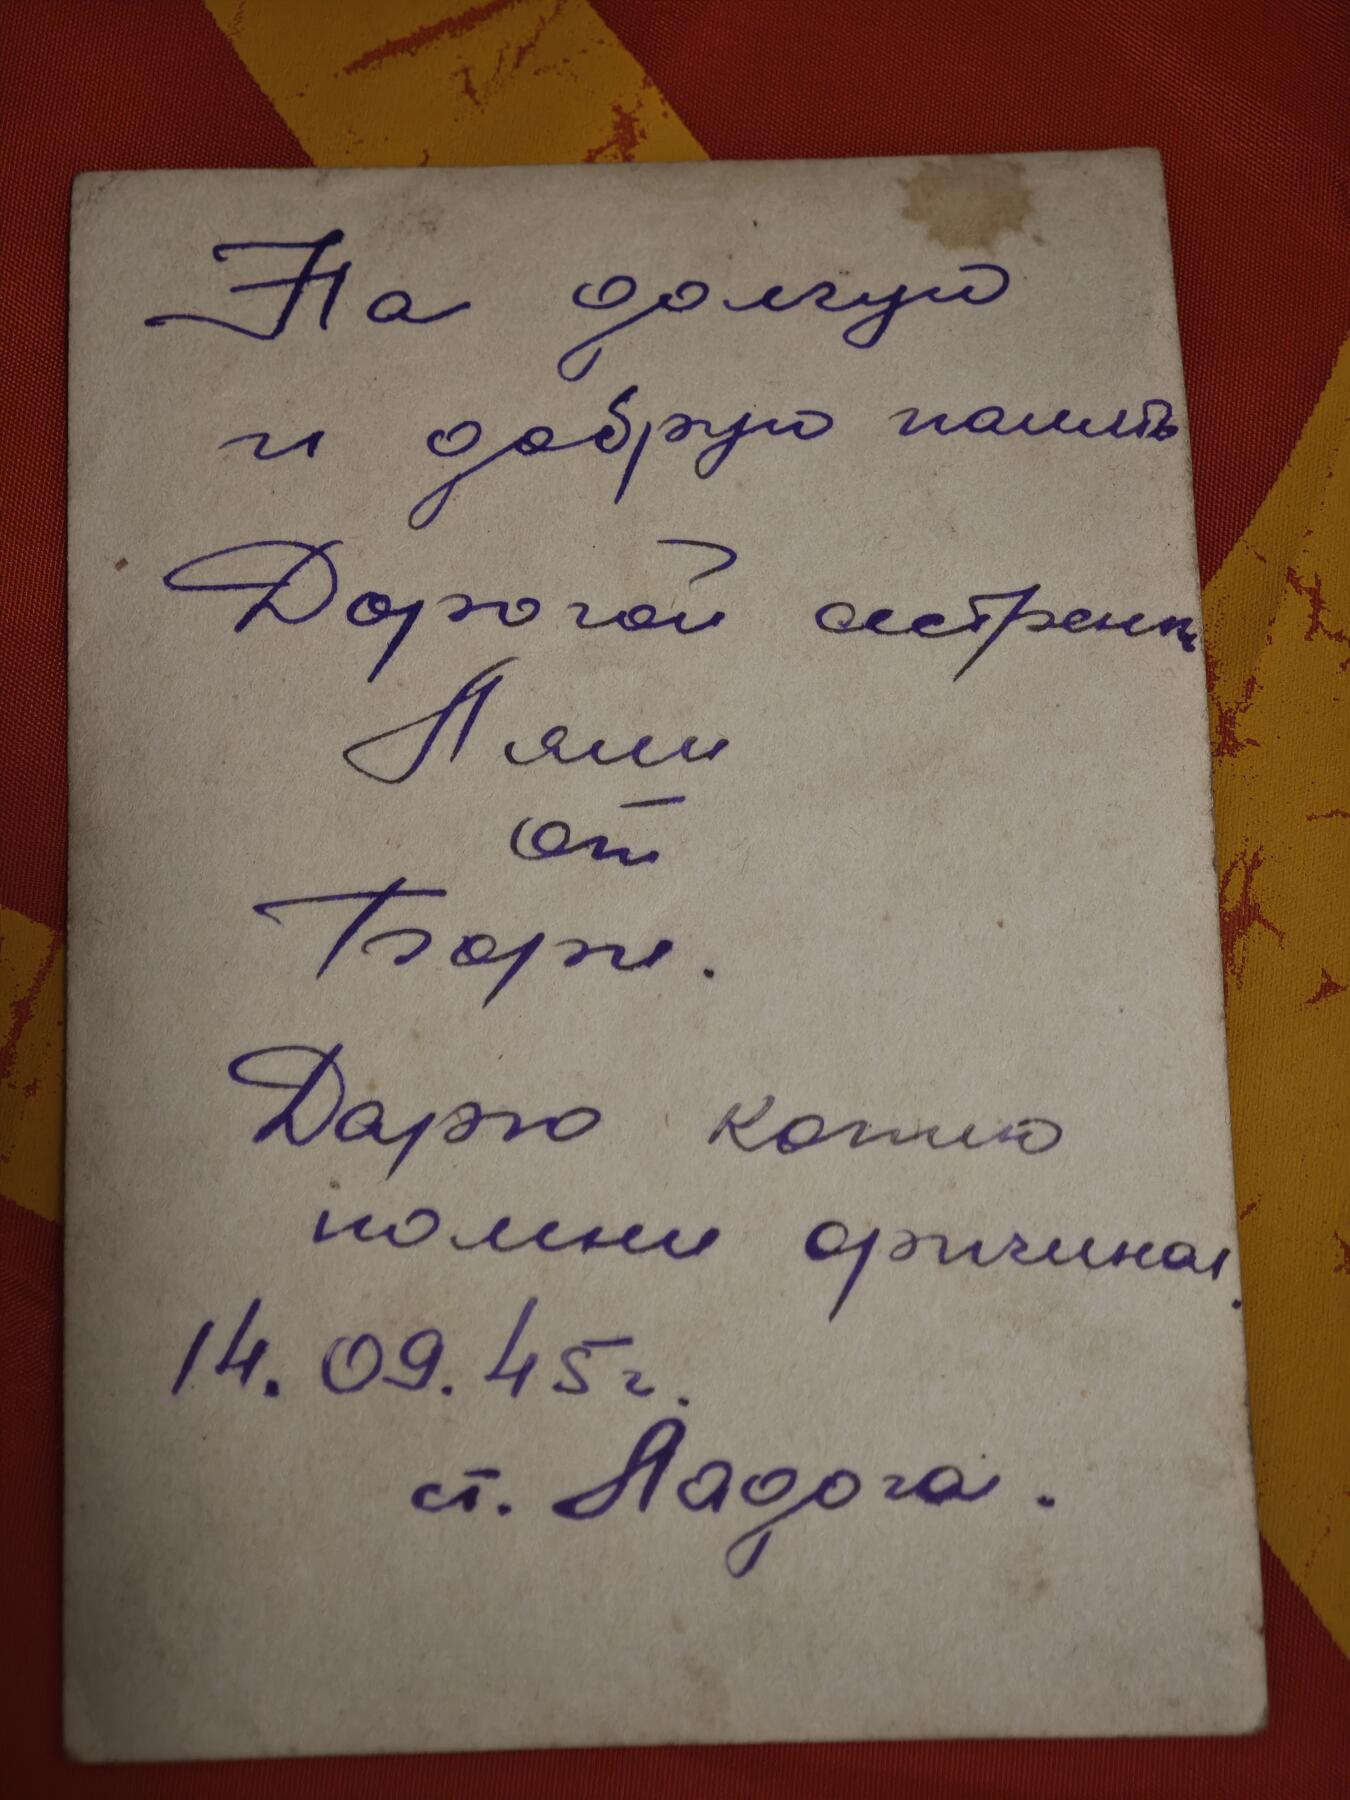 На долгую
и добрую память
Дорогой сестренке
Ляли
от
Бори.
Дарю копию
помни оригинал.
14.09.45г.
ст. Ладога.